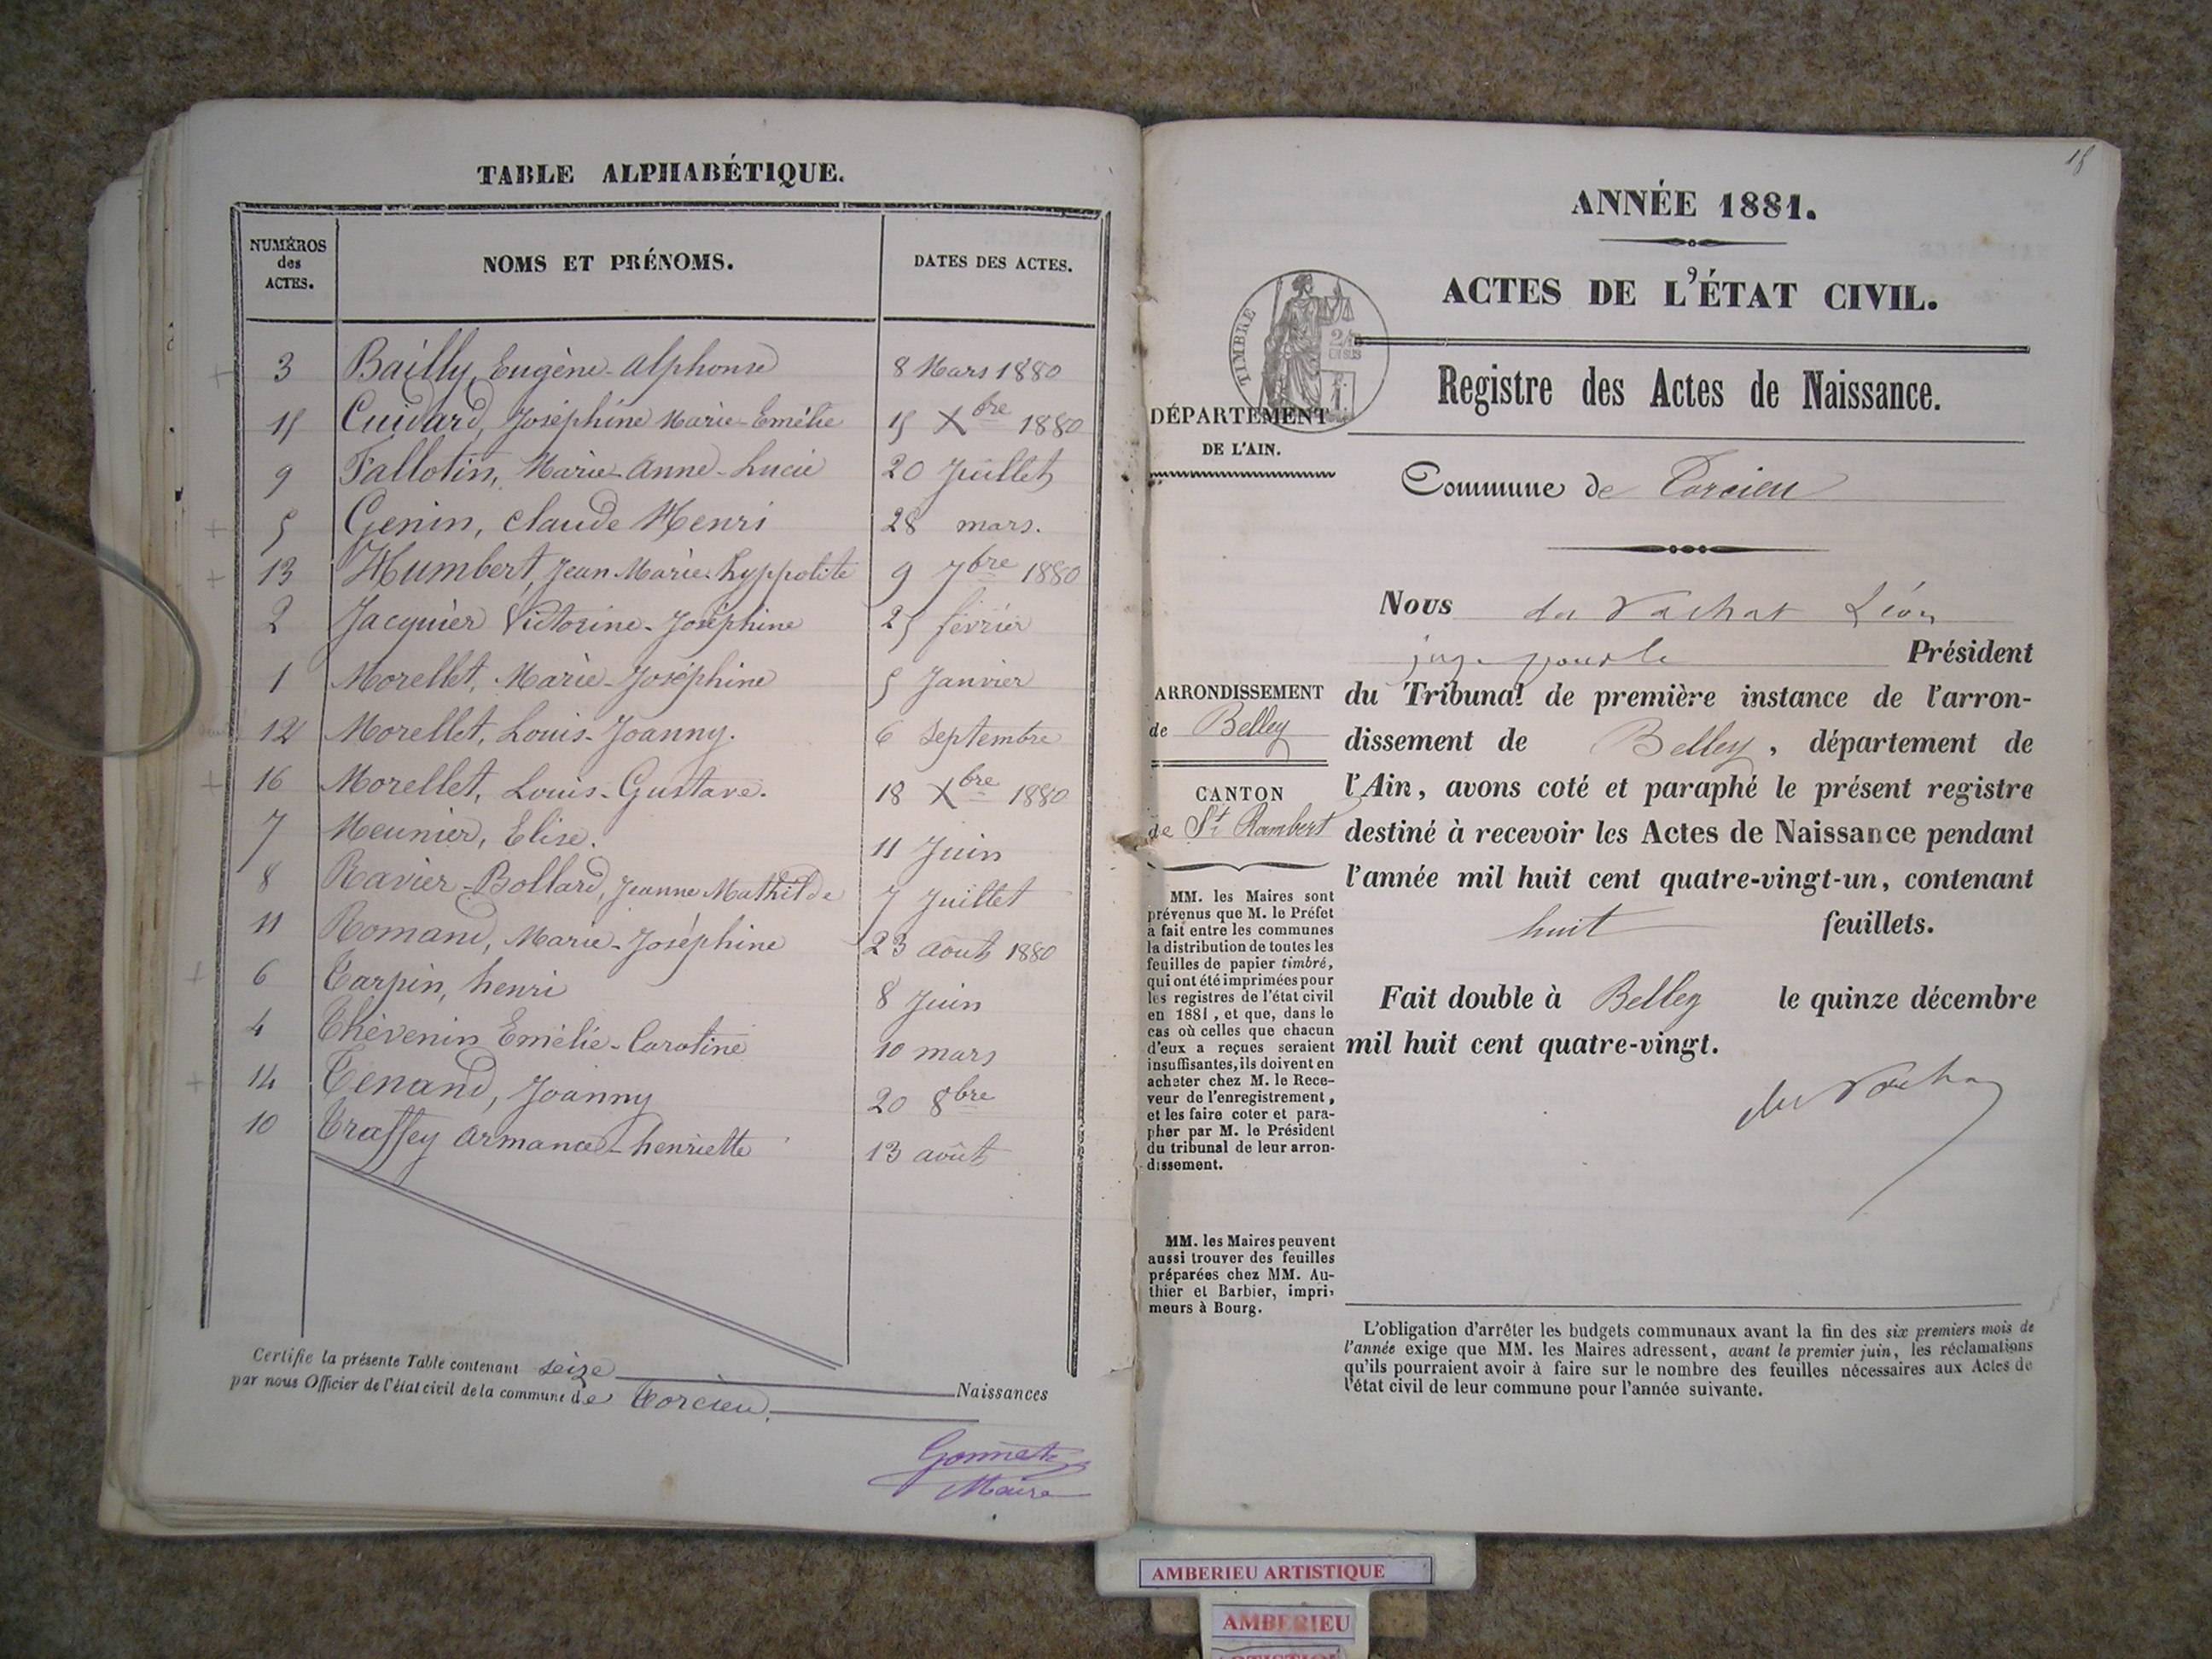 TABLE ALPHABÉTIQUE.
NUMÉROS des ACTES. NOMS ET PRÉNOMS. DATES DES ACTES.
3 Bailly, Eugène-Alphonse 8 Mars 1880
15 Cuidard, Joséphine Marie-Emélie 15 Xbre 1880
9 Fallotin, Marie-Anne-Lucie 20 Juillet
5 Genin, Claude Henri 28 mars.
13 Humbert, Jean-Marie-hyppolite 9 7bre 1880
2 Jacquier Victorine-Joséphine 25 février
1 Morellet, Marie-Joséphine 5 Janvier
12 Morellet, Louis-Joanny. 6 Septembre
16 Morellet, Louis-Gustave. 18 Xbre 1880
7 Meunier, Elise. 11 Juin
8 Ravier-Bollard, Jeanne Mathilde 7 Juillet
11 Romand, Marie-Joséphine 23 août 1880
6 Tarpin, henri 8 Juin
4 Thévenin Emélie-Caroline 10 mars
14 Tenand, Joanny 20 8bre
10 Traffey Armance-henriette 13 août
Certifie la présente Table contenant seize Naissances
par nous Officier de l'état civil de la commune de Torcieu.
Gonnet
Maire
18
ANNÉE 1881.
ACTES DE L'ÉTAT CIVIL.
TIMBRE
Registre des Actes de Naissance.
DÉPARTEMENT
DE L'AIN.
Commune de Torcieu
Nous du Vachat Léon
juge pour le Président
du Tribunal de première instance de l'arron-
dissement de Belley, département de
l'Ain, avons coté et paraphé le présent registre
destiné à recevoir les Actes de Naissance pendant
l'année mil huit cent quatre-vingt-un, contenant
huit feuillets.
Fait double à Belley le quinze décembre
mil huit cent quatre-vingt.
du Vachat
ARRONDISSEMENT
de Belley
CANTON
de St Rambert
MM. les Maires sont
prévenus que M. le Préfet
a fait entre les communes
la distribution de toutes les
feuilles de papier timbré,
qui ont été imprimées pour
les registres de l'état civil
en 1881, et que, dans le
cas où celles que chacun
d'eux a reçues seraient
insuffisantes, ils doivent en
acheter chez M. le Rece-
veur de l'enregistrement,
et les faire coter et para-
pher par M. le Président
du tribunal de leur arron-
dissement.
MM. les Maires peuvent
aussi trouver des feuilles
préparées chez MM. Au-
thier et Barbier, impri-
meurs à Bourg.
L'obligation d'arrêter les budgets communaux avant la fin des six premiers mois de
l'année exige que MM. les Maires adressent, avant le premier juin, les réclamations
qu'ils pourraient avoir à faire sur le nombre des feuilles nécessaires aux Actes de
l'état civil de leur commune pour l'année suivante.
AMBERIEU ARTISTIQUE
AMBERIEU
ARTISTIQUE